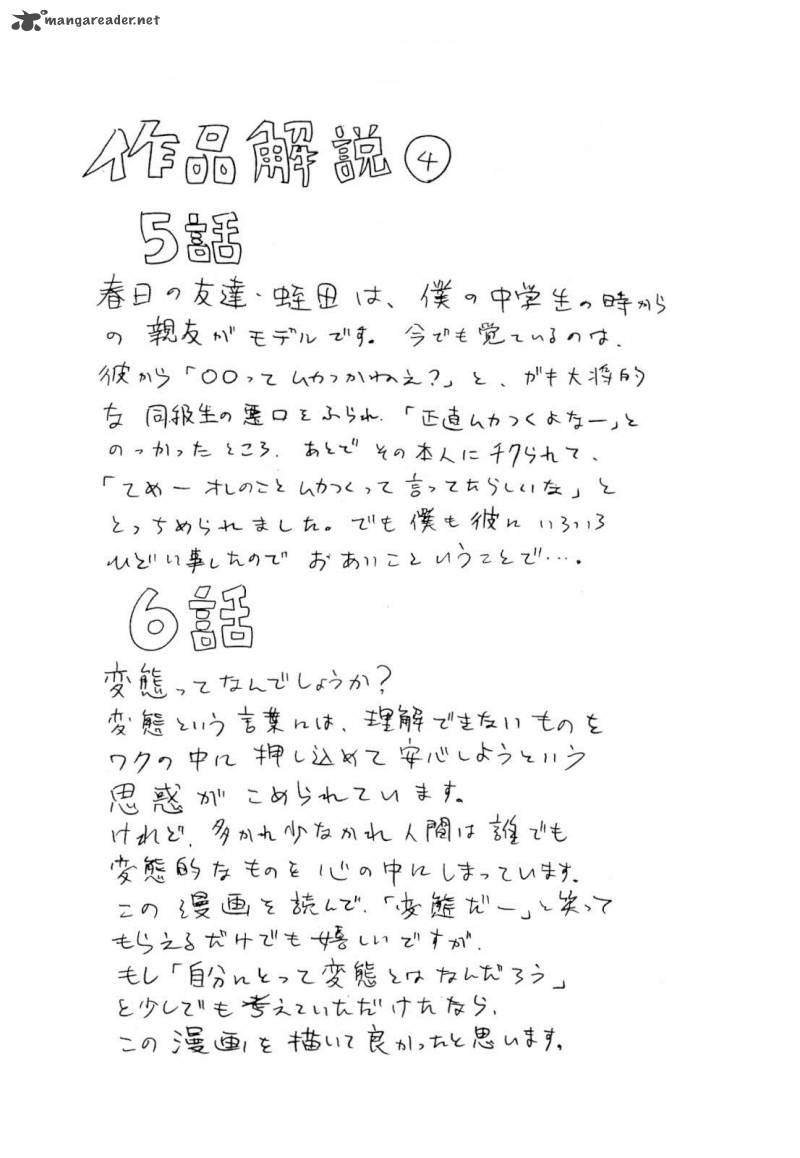 mangareader.net
作品解説④
5話
春日の友達・蛭田は、僕の中学生の時から
の親友がモデルです。今でも覚えているのは、
彼から「〇〇ってムカつかねえ?」と、ガキ大将的
な同級生の悪口をふられ、「正直ムカつくよなー」と
のっかったところ、あとでその本人にチクられて、
「てめーオレのことムカつくって言ってたらしいな」と
とっちめられました。でも僕も彼にいろいろ
ひどい事したのでおあいこということで…。
6話
変態ってなんでしょうか?
変態という言葉には、理解できないものを
ワクの中に押し込めて安心しようという
思惑がこめられています。
けれど、多かれ少なかれ人間は誰でも
変態的なものを心の中にしまっています。
この漫画を読んで、「変態だー」と笑って
もらえるだけでも嬉しいですが、
もし「自分にとって変態とはなんだろう」
と少しでも考えていただけたなら、
この漫画を描いて良かったと思います。